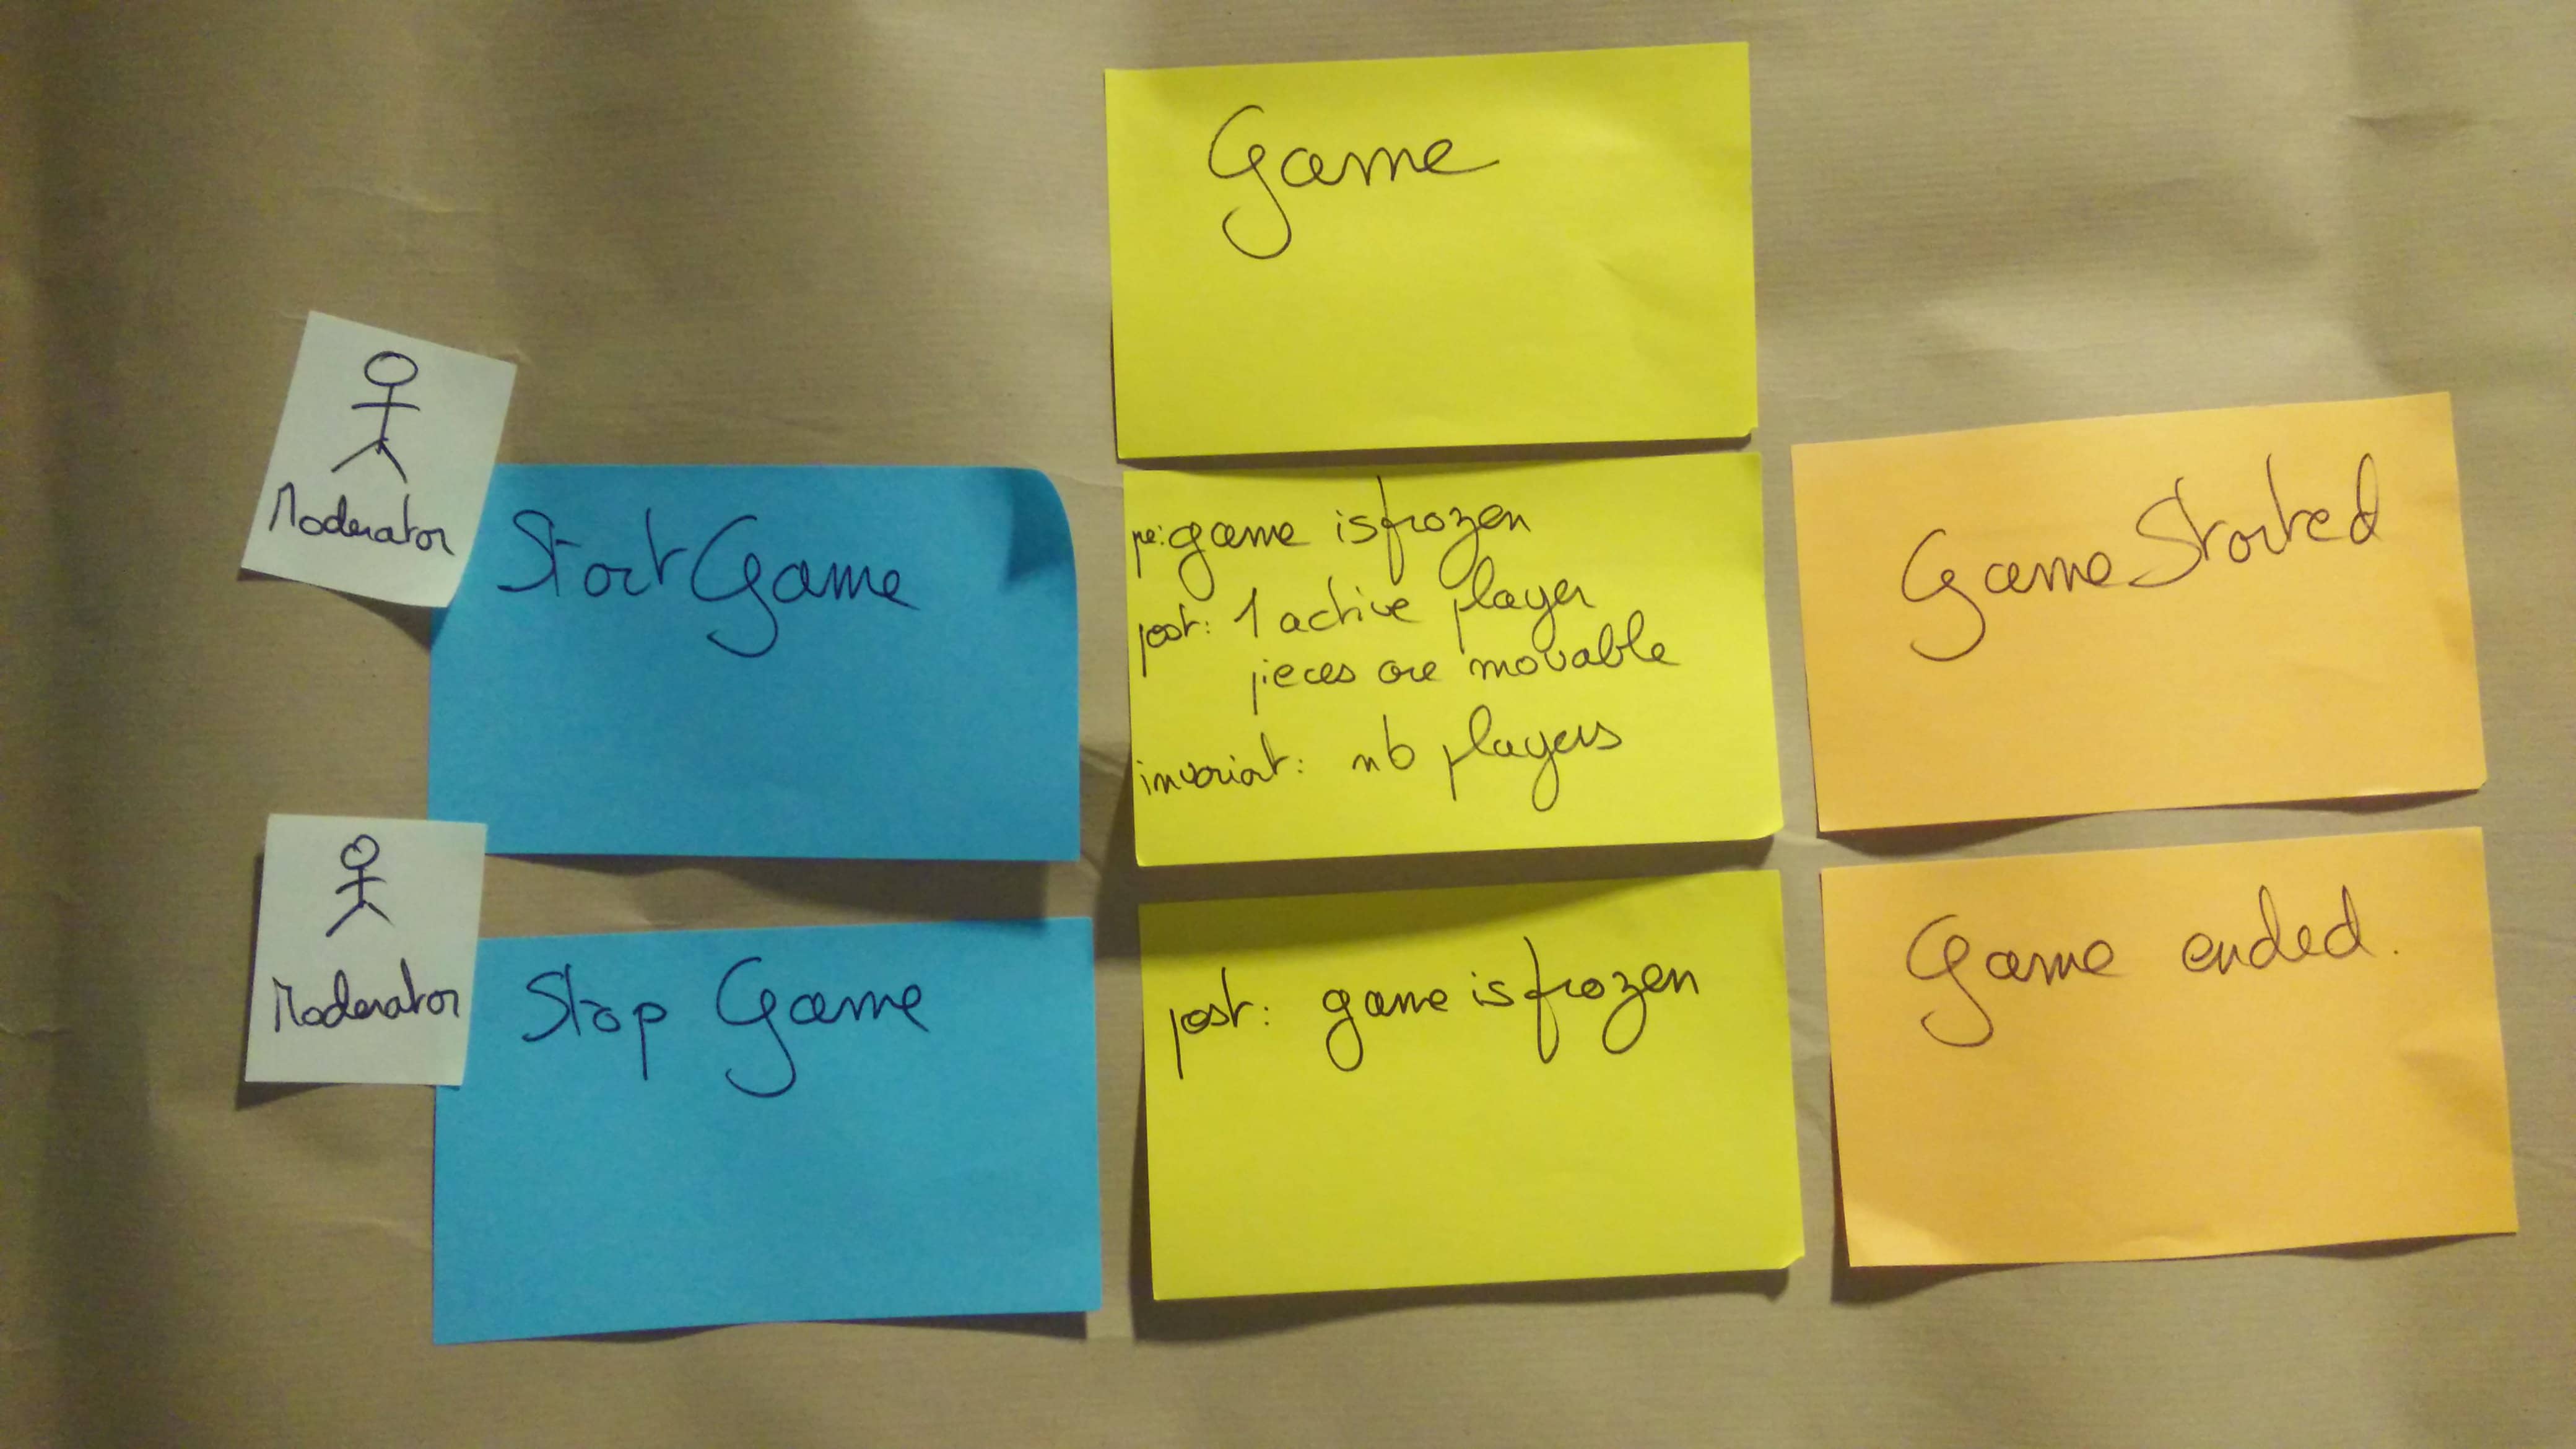 Game
Moderator
Start Game
pre: game is frozen
post: 1 active player
pieces are movable
invariant: nb players
Game Started
Moderator
Stop Game
post: game is frozen
Game ended.